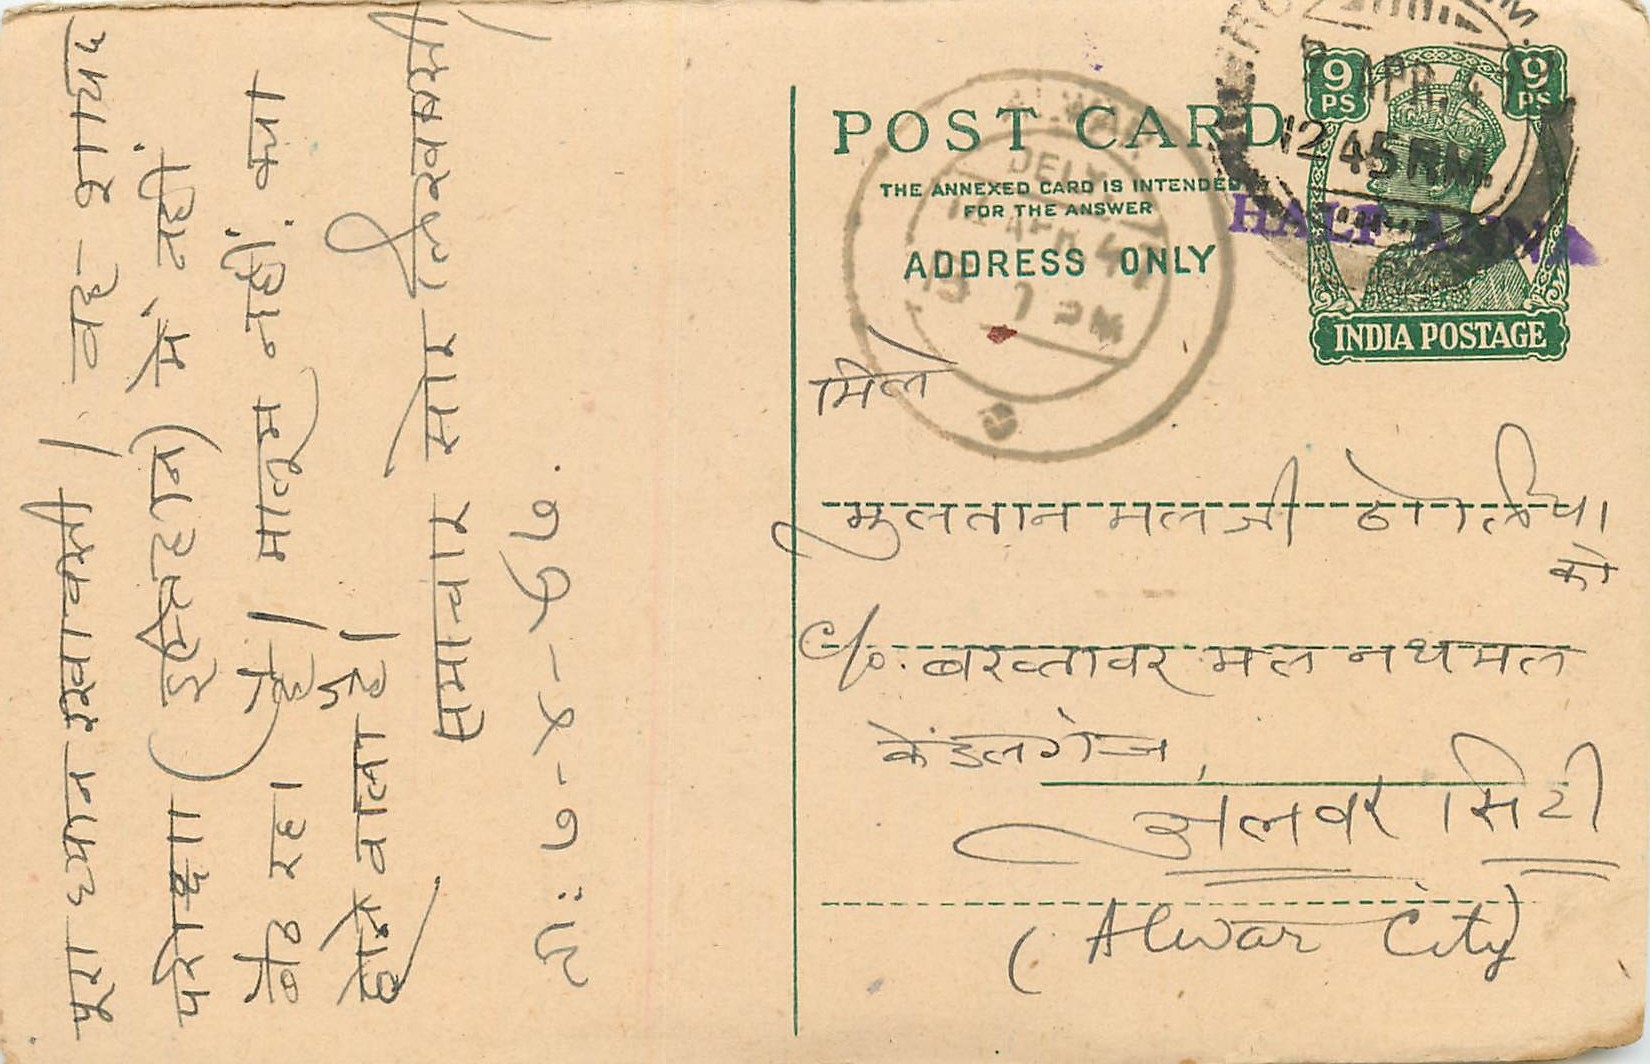 पूरा ध्यान रखावसी। वह- शायद
परीक्षा (इन्टरव्यू) में नहीं
बैठ रहा है। मालूम नहीं क्या
होने वाला है।
समाचार सारा लिखावसी
ता: ७-४-४७.
POST CARD
THE ANNEXED CARD IS INTENDED
FOR THE ANSWER
ADDRESS ONLY
9 PS
9 PS
INDIA POSTAGE
HALF ANNA
APR. 47
12 45 P.M.
ALWAR
DELY
APR 47
1 PM
मिले
मुलतान मलजी ढोलिया
को
C/o. बख्तावर मल नथमल
केडलगंज,
अलवर सिटी
(Alwar City)